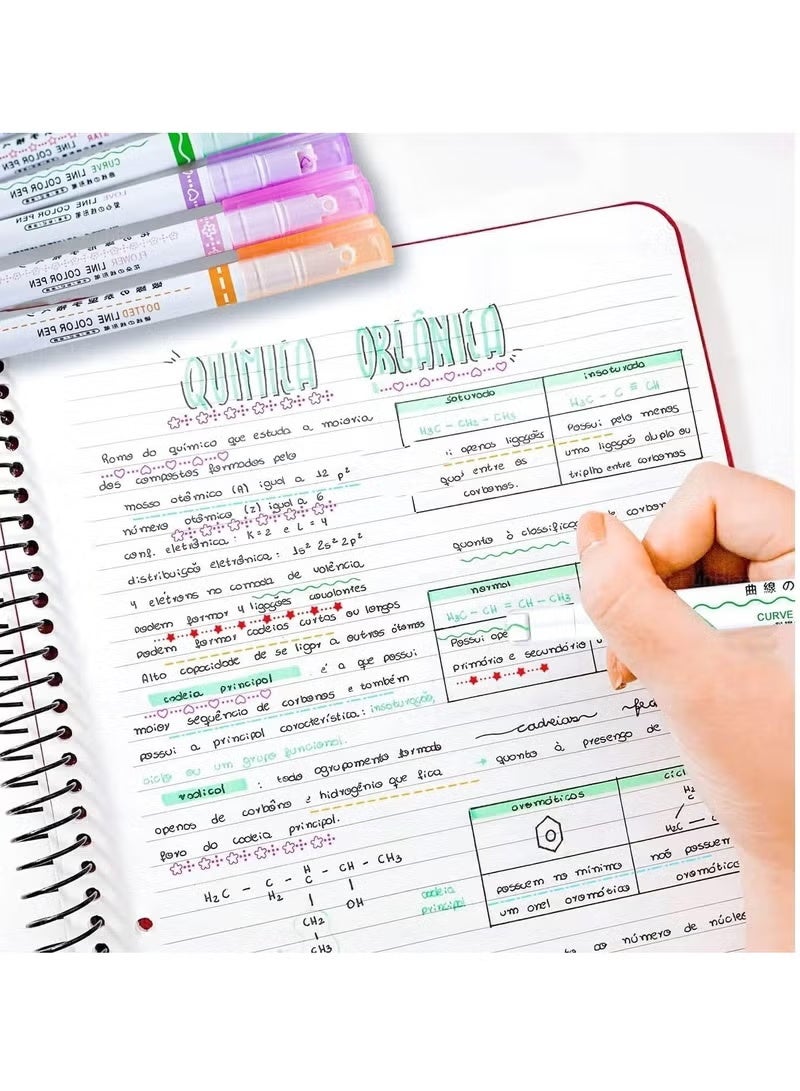 STAR
LINE COLOR PEN
CURVE LINE COLOR PEN
LOVE LINE COLOR PEN
FLOWER LINE COLOR PEN
DOTTED LINE COLOR PEN
QUÍMICA ORGÂNICA
Ramo da química que estuda a maioria
dos compostos formados pelo
massa atômica (A) igual a 12 p²
número atômico (z) igual a 6
conf. eletrônica: K=2 e L=4
distribuição eletrônica: 1s² 2s² 2p²
4 elétrons na camada de valência
podem formar 4 ligações covalentes
podem formar cadeias curtas ou longas
Alta capacidade de se ligar a outros átomos
cadeia principal : é a que possui
maior sequência de carbonos e também
possui a principal característica: insaturação,
ciclo ou um grupo funcional.
radical : todo agrupamento formado
apenas de carbono e hidrogênio que fica
fora da cadeia principal.
H₂C - C - C - CH - CH3
H₂ H
OH
CH2
CH3
cadeia
principal
saturada
insaturada
H3C - CH2 - CH3
H2C - C ≡ CH
apenas ligações
entre os
carbonos.
Possui pelo menos
uma ligação dupla ou
tripla entre carbonos
quanto à
normal
H3C - CH = CH - CH3
Possui
primário e secundário
cadeias
quanto à presença de
aromáticos
possuem no mínimo
um anel aromático
H2
C
H2C
não possuem
aromático
ao número de
曲線の
CURVE